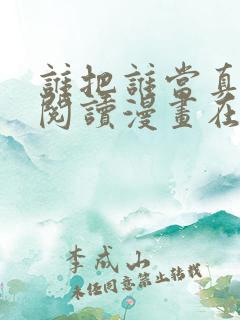 誰把誰當真
閱讀漫畫在
李成山
未經同意禁止轉載